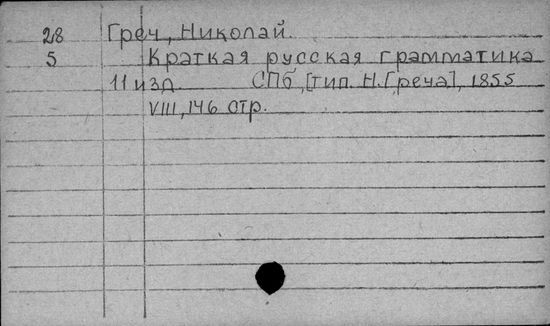 28 Греч, Николай
5 Краткая русская грамматика
11 изд. СПб, [тип. Н. Греча], 1855
VIII, 146 стр.